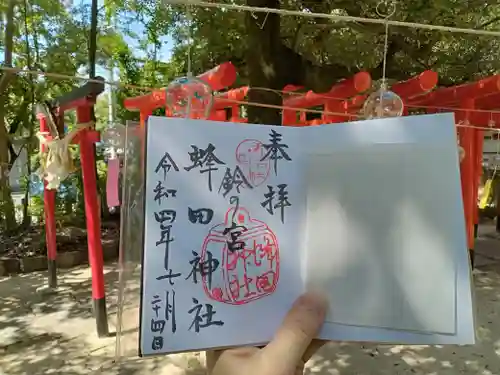 奉拝
鈴の宮
蜂田神社
令和四年七月二十四日
蜂田神社